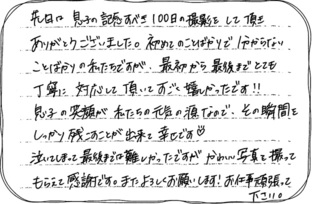 先日は 息子の記念すべき100日の撮影を して頂き
ありがとうございました。初めてのことばかりで 分からない
ことばかりの私たちですが、最初から最後までとても
丁寧に 対応して頂いてすごく嬉しかったです!!
息子の笑顔が 私たちの元気の源なので、その瞬間を
しっかり残すことが出来て幸せです
泣いてしまって最後までは難しかったですが かわいい写真を撮って
もらえて感謝です。またよろしくお願いします! お仕事頑張って
下さい。